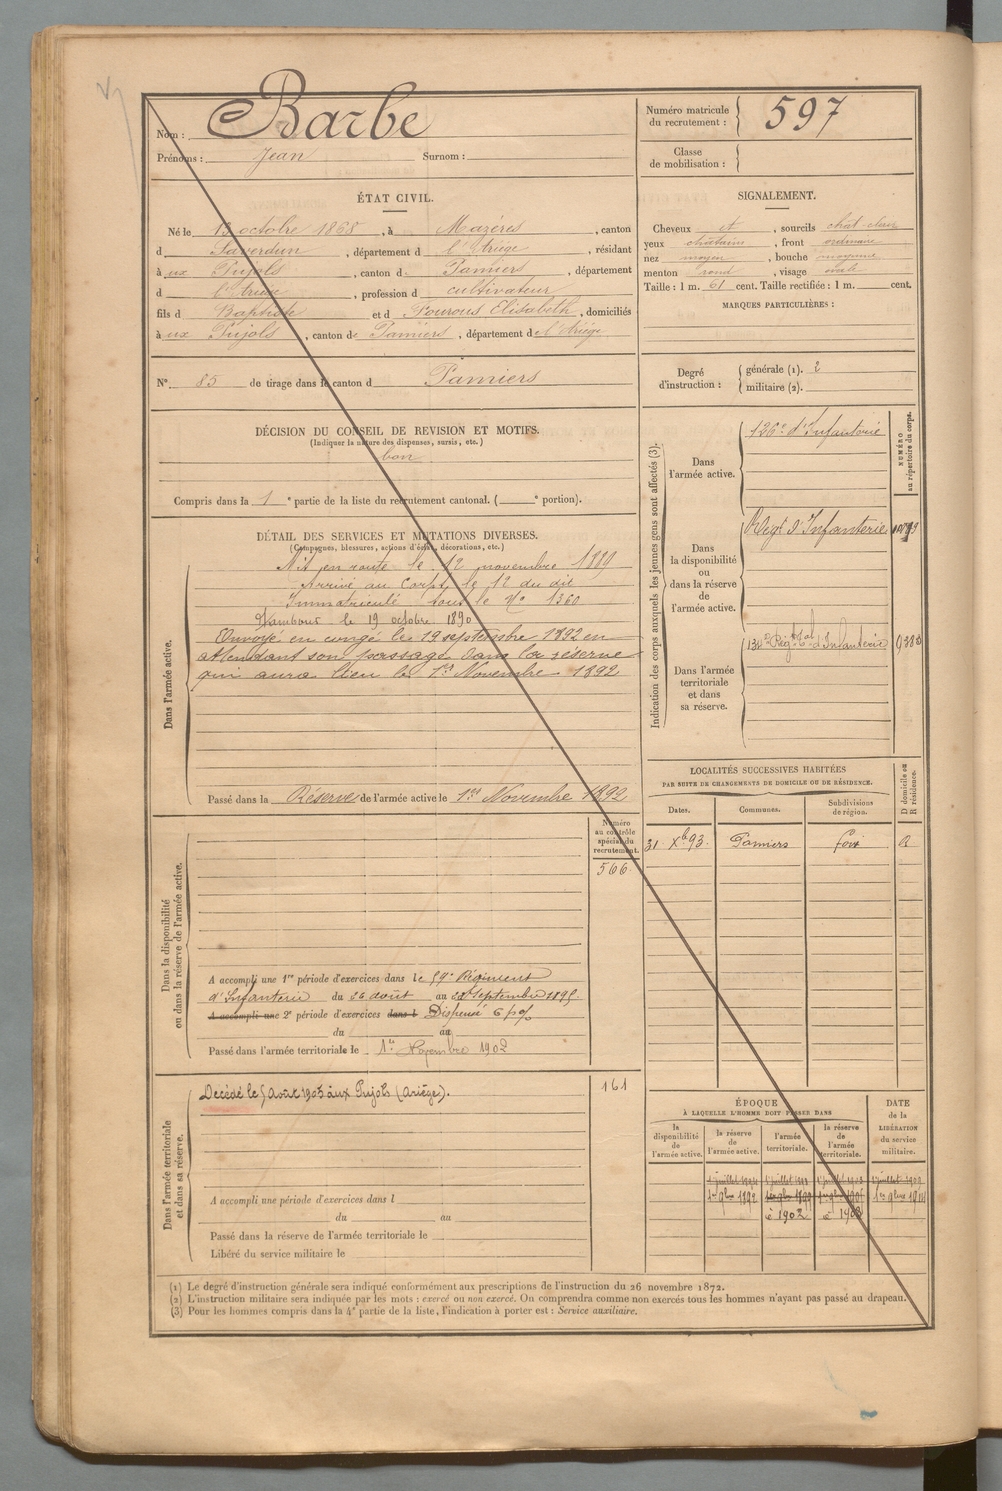 Nom : Barbe
Prénoms : Jean Surnom :
Numéro matricule
du recrutement : 597
Classe
de mobilisation :
ÉTAT CIVIL.
Né le 13 octobre 1868, à Mazères, canton
d Saverdun, département d l'Ariège, résidant
à ux Pujols, canton de Pamiers, département
d l'Ariège, profession d cultivateur
fils d Baptiste et d Fourous Elisabeth, domiciliés
à ux Pujols, canton de Pamiers, département de l'Ariège
N° 85 de tirage dans le canton d Pamiers
SIGNALEMENT.
Cheveux et, sourcils chat. clair
yeux chatains, front ordinaire
nez moyen, bouche moyenne
menton rond, visage ovale
Taille : 1 m. 61 cent. Taille rectifiée : 1 m. cent.
MARQUES PARTICULIÈRES :
Degré
d'instruction :
générale (1). 2
militaire (2).
DÉCISION DU CONSEIL DE REVISION ET MOTIFS.
(Indiquer la nature des dispenses, sursis, etc.)
bon
Compris dans la 1 e partie de la liste du recrutement cantonal. ( e portion).
DÉTAIL DES SERVICES ET MUTATIONS DIVERSES.
(Campagnes, blessures, actions d'éclat, décorations, etc.)
Dans l'armée active.
Mit en route le 12 novembre 1889
Arrivé au Corps le 12 du dit
Immatriculé sous le N° 1360
Tambour le 19 octobre 1890
Envoyé en congé le 19 septembre 1892 en
attendant son passage dans la réserve
qui aura lieu le 1er Novembre 1892
Passé dans la Réserve de l'armée active le 1er Novembre 1892
Indication des corps auxquels les jeunes gens sont affectés (3).
NUMÉRO
au répertoire du corps.
Dans
l'armée active.
126e d'Infanterie
Dans
la disponibilité
ou
dans la réserve
de
l'armée active.
Régt d'Infanterie
Dans l'armée
territoriale
et dans
sa réserve.
d'Infanterie
LOCALITÉS SUCCESSIVES HABITÉES
PAR SUITE DE CHANGEMENTS DE DOMICILE OU DE RÉSIDENCE.
D domicile ou
R résidence.
Dates. Communes. Subdivisions
de région.
31 Xb 93. Pamiers Foix R
Dans la disponibilité
ou dans la réserve de l'armée active.
Numéro
au contrôle
spécial du
recrutement.
566
A accompli une 1re période d'exercices dans le 59e Régiment
d'Infanterie du 26 août au 22 septembre 1895.
A accompli une 2e période d'exercices dans l Dispensé 6 p%
du au
Passé dans l'armée territoriale le 1er Novembre 1902
Dans l'armée territoriale
et dans sa réserve.
161
Décédé le 5 Août 1903 aux Pujols (Ariège).
A accompli une période d'exercices dans l
du au
Passé dans la réserve de l'armée territoriale le
Libéré du service militaire le
ÉPOQUE
À LAQUELLE L'HOMME DOIT PASSER DANS
la
disponibilité
de
l'armée active.
la réserve
de
l'armée active.
l'armée
territoriale.
la réserve
de
l'armée
territoriale.
DATE
de la
LIBÉRATION
du service
militaire.
1er 9bre 1892 1er 9bre 1899
è 1902 è 1908
(1) Le degré d'instruction générale sera indiqué conformément aux prescriptions de l'instruction du 26 novembre 1872.
(2) L'instruction militaire sera indiquée par les mots : exercé ou non exercé. On comprendra comme non exercés tous les hommes n'ayant pas passé au drapeau.
(3) Pour les hommes compris dans la 4e partie de la liste, l'indication à porter est : Service auxiliaire.